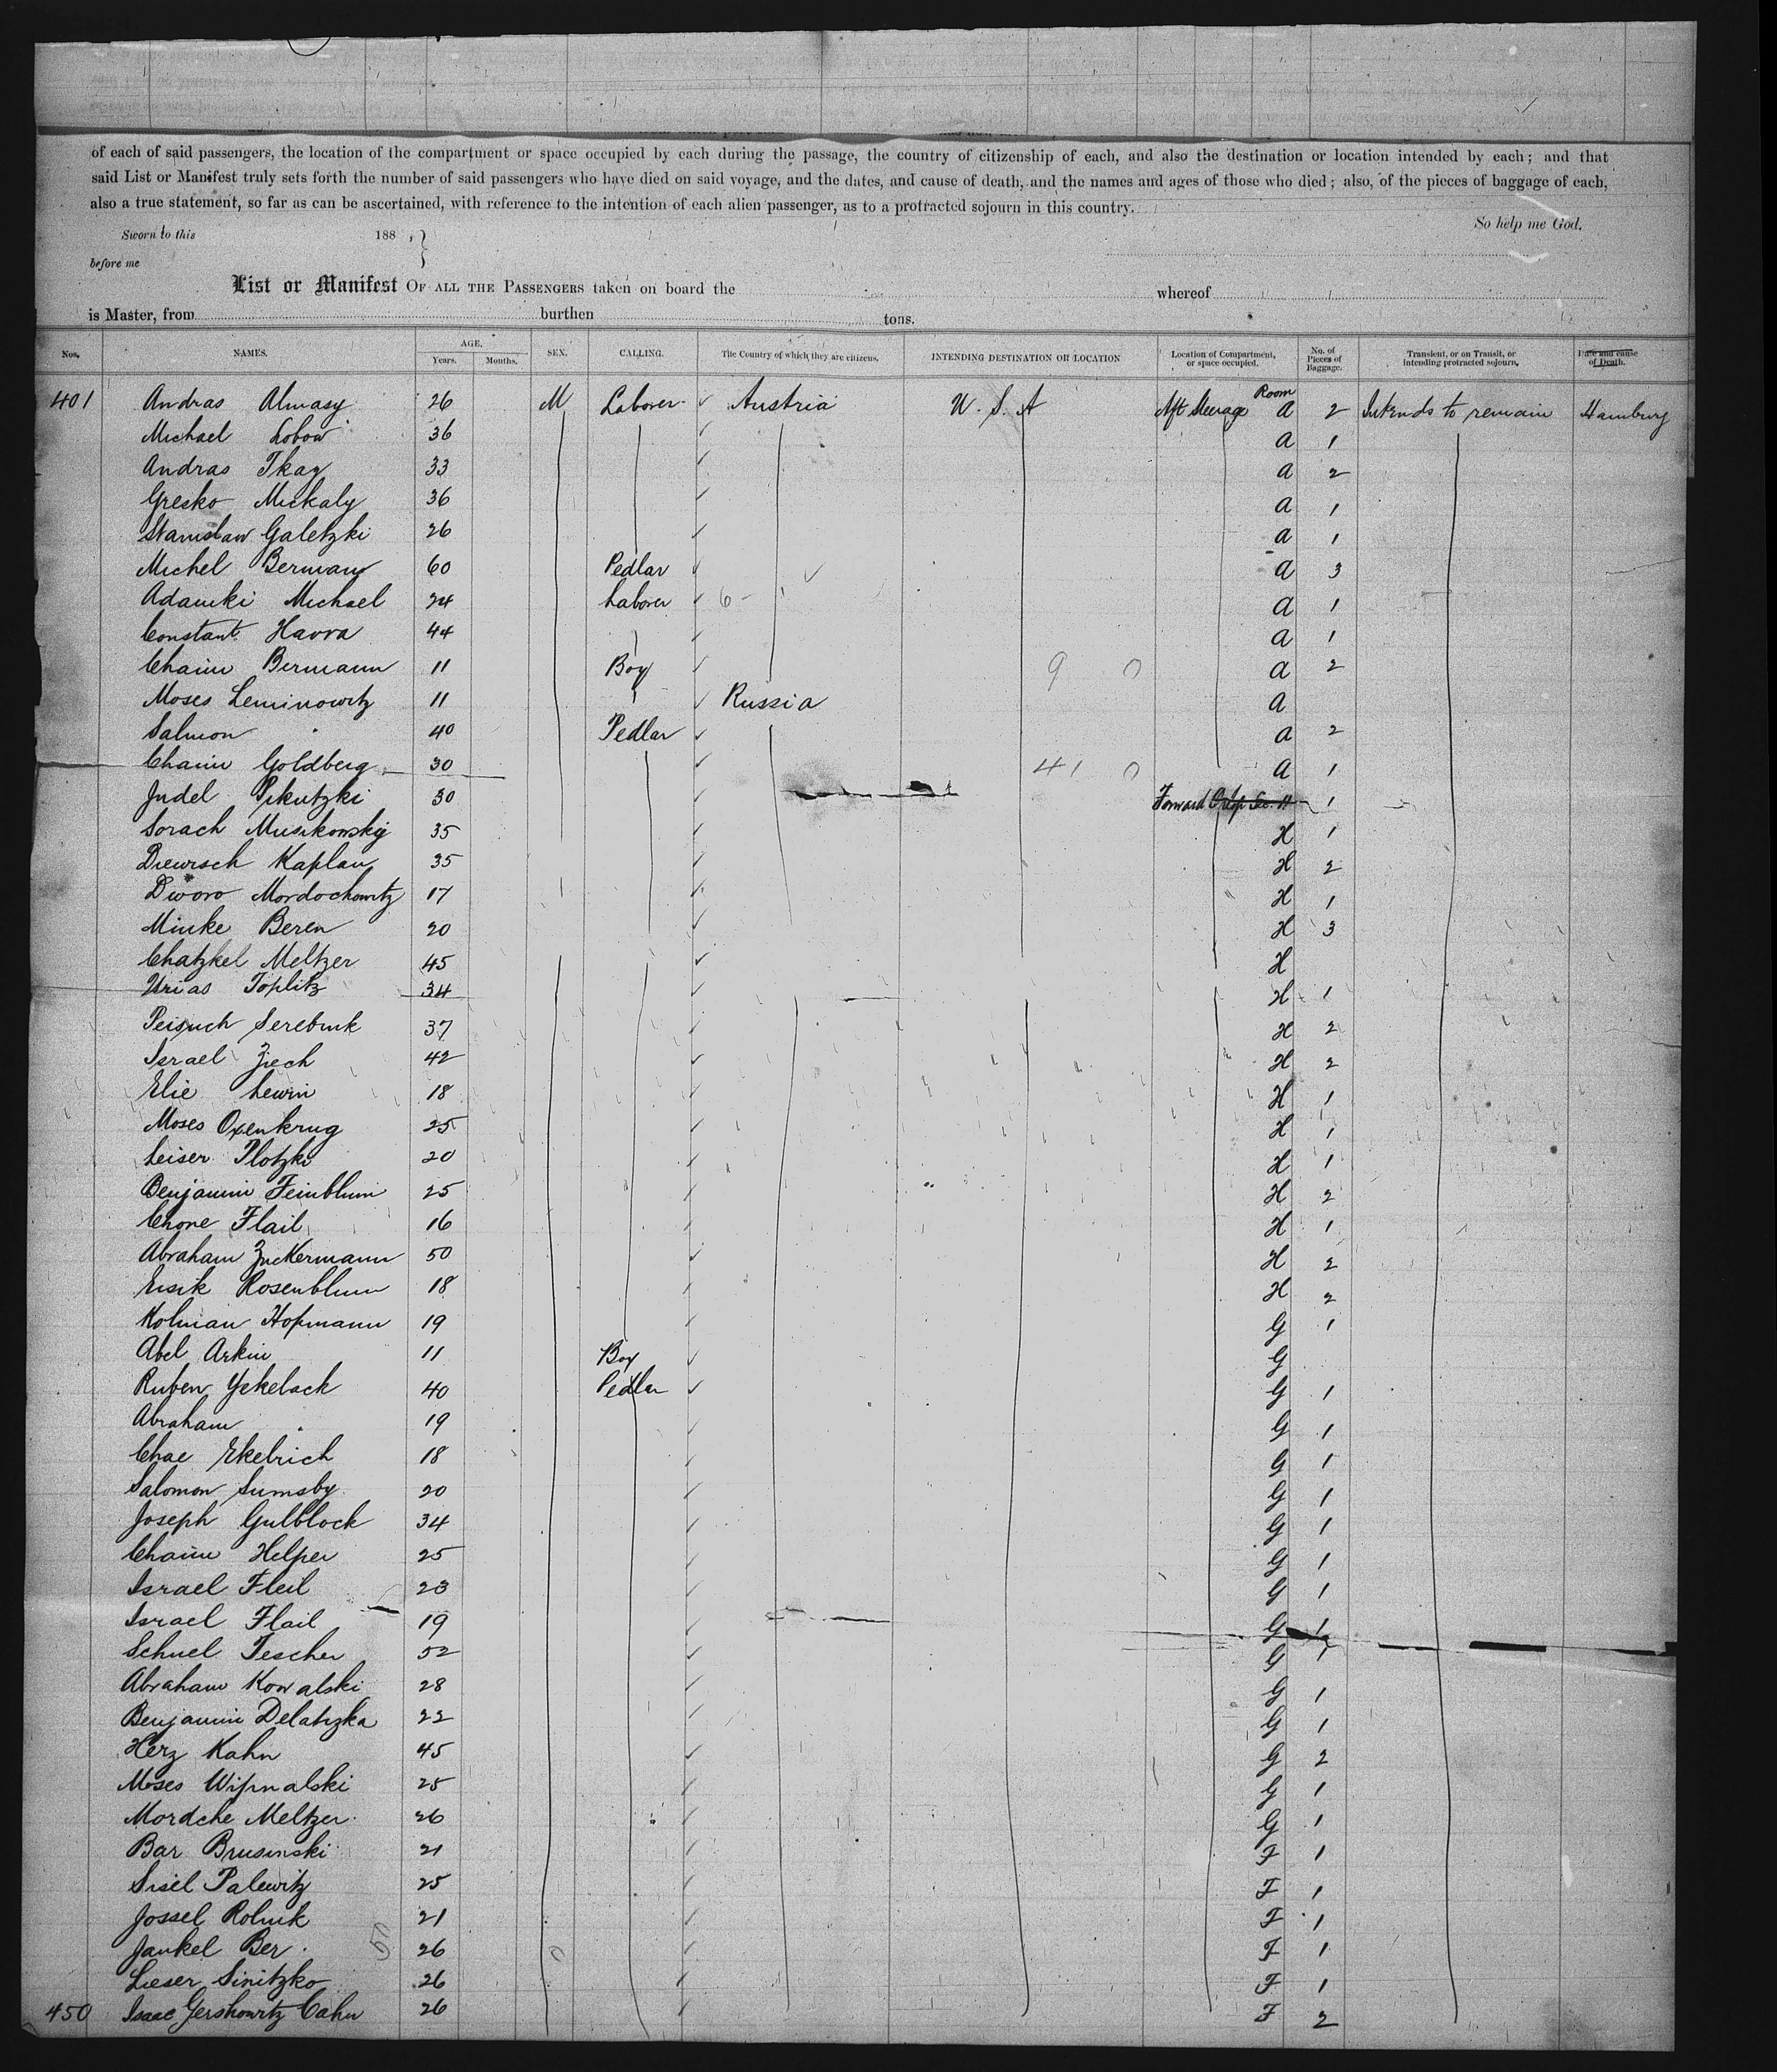 of each of said passengers, the location of the compartment or space occupied by each during the passage, the country of citizenship of each, and also the destination or location intended by each; and that
said List or Manifest truly sets forth the number of said passengers who have died on said voyage, and the dates, and cause of death, and the names and ages of those who died; also, of the pieces of baggage of each,
also a true statement, so far as can be ascertained, with reference to the intention of each alien passenger, as to a protracted sojourn in this country.
So help me God.
Sworn to this 188 ,
before me
List or Manifest OF ALL THE PASSENGERS taken on board the whereof
is Master, from burthen tons.
Nos. NAMES. AGE. Years. Months. SEX. CALLING. The Country of which they are citizens. INTENDING DESTINATION OR LOCATION Location of Compartment, or space occupied. No. of Pieces of Baggage. Transient, or on Transit, or intending protracted sojourn. Date and cause of Death.
401 Andras Almasy 26 M Laborer Austria U. S. A Aft Steerage Room A 2 Intends to remain Hamburg
Michael Lobow 36 A 1
Andras Tkay 33 A 2
Gresko Mickaly 36 A 1
Stanislaw Galetzki 26 A 1
Michel Bermann 60 Pedlar A 3
Adamki Michael 24 Laborer 6 A 1
Constant Havra 44 A 1
Chaim Bermann 11 Boy 9 0 A 2
Moses Leminowitz 11 Russia A
Salmon " 40 Pedlar A 2
Chaim Goldberg 30 41 0 A 1
Judel Pikutzki 30 Forward 1
Sorach Musikowskij 35 H 1
Diewisch Kaplan 35 H 2
Dworo Mordochowitz 17 H 1
Minke Beren 20 H 3
Chatzkel Meltzer 45 H
Urias Toplitz 34 H 1
Peisuch Serebnik 37 H 2
Israel Ziech 42 H 2
Elie Lewin 18 H 1
Moses Oxenkrug 25 H 1
Leiser Plotzki 20 H 1
Benjamin Feinblum 25 H 2
Chone Flail 16 H 1
Abraham Zuckermann 50 H 2
Eisik Rosenblum 18 H 2
Kolman Hopmann 19 G 1
Abel Arkin 11 Boy G
Ruben Yekelsck 40 Pedlar G 1
Abraham " 19 G 1
Chae Ekelrich 18 G 1
Salomon Sumsby 20 G 1
Joseph Gulblock 34 G 1
Chaim Helper 25 G 1
Israel Fleil 23 G 1
Israel Flail 19 G 1
Schuel Tescher 52 G 1
Abraham Kowalski 28 G 1
Benjamin Delatizka 22 G 1
Herz Kahn 45 G 2
Moses Wipnalski 25 G 1
Mordche Meltzer 26 G 1
Bar Brusinski 21 F 1
Sisel Palewitz 25 F 1
Jossel Rolnik 21 F 1
Jankel Ber 50 26 0 F 1
Lieser Sinitzko 26 F 1
450 Isaac Gershowitz Cahn 26 F 2